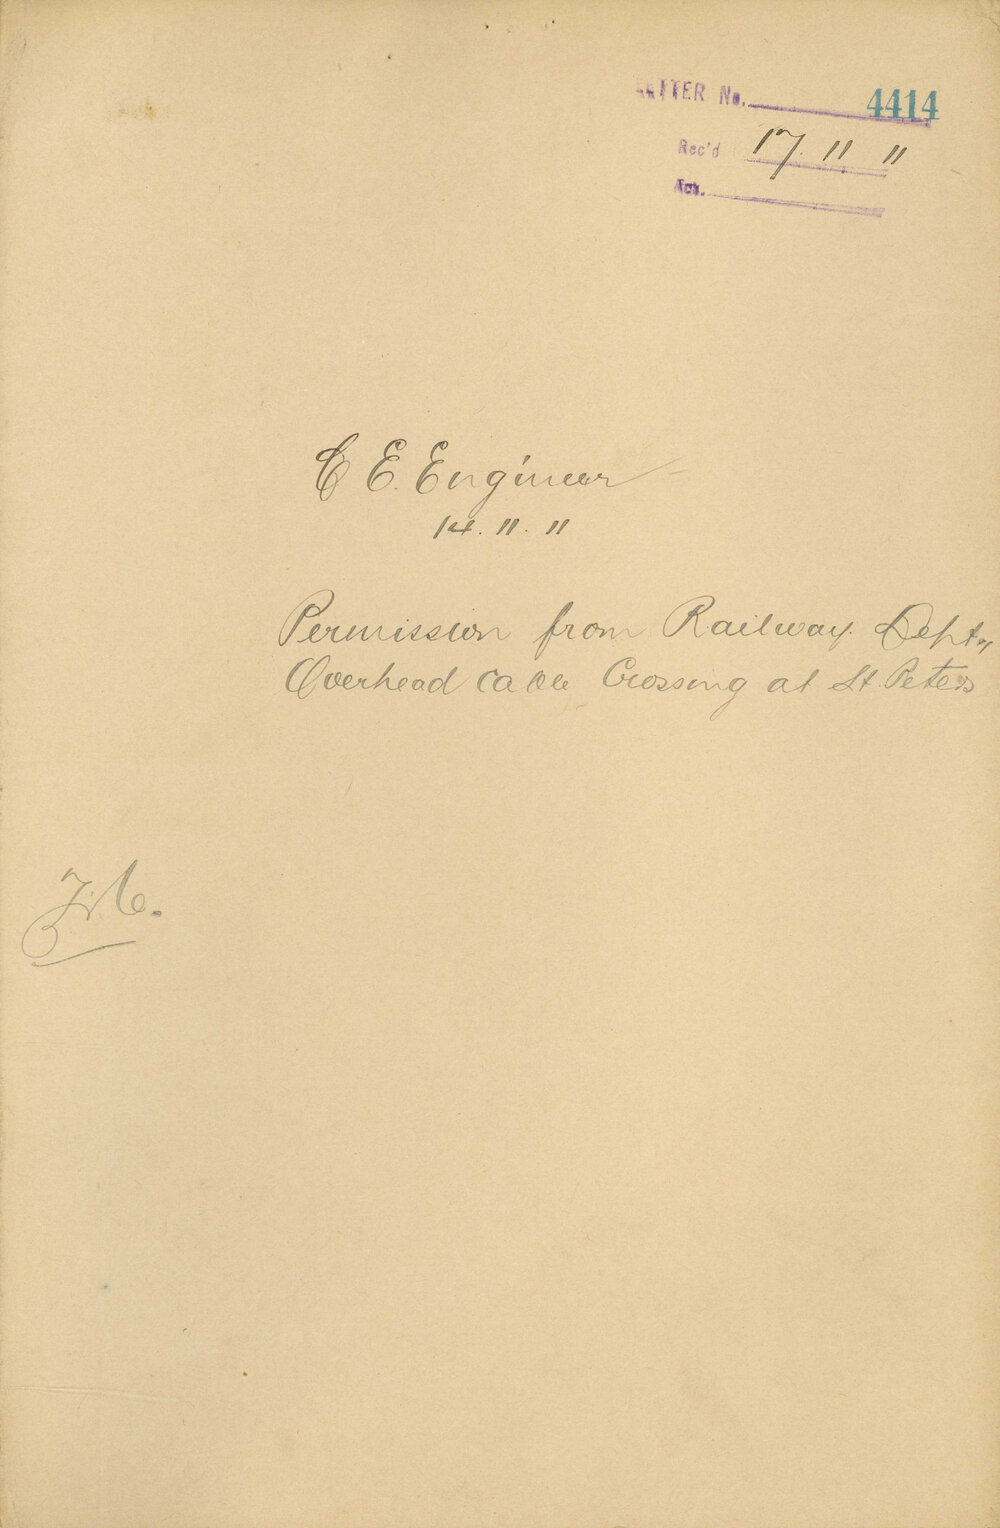 LETTER No. 4414
Rec'd 17. 11 11
Ack.
C E. Engineer
14. 11. 11
Permission from Railway. Dept,
Overhead cable Crossing at St. Peters